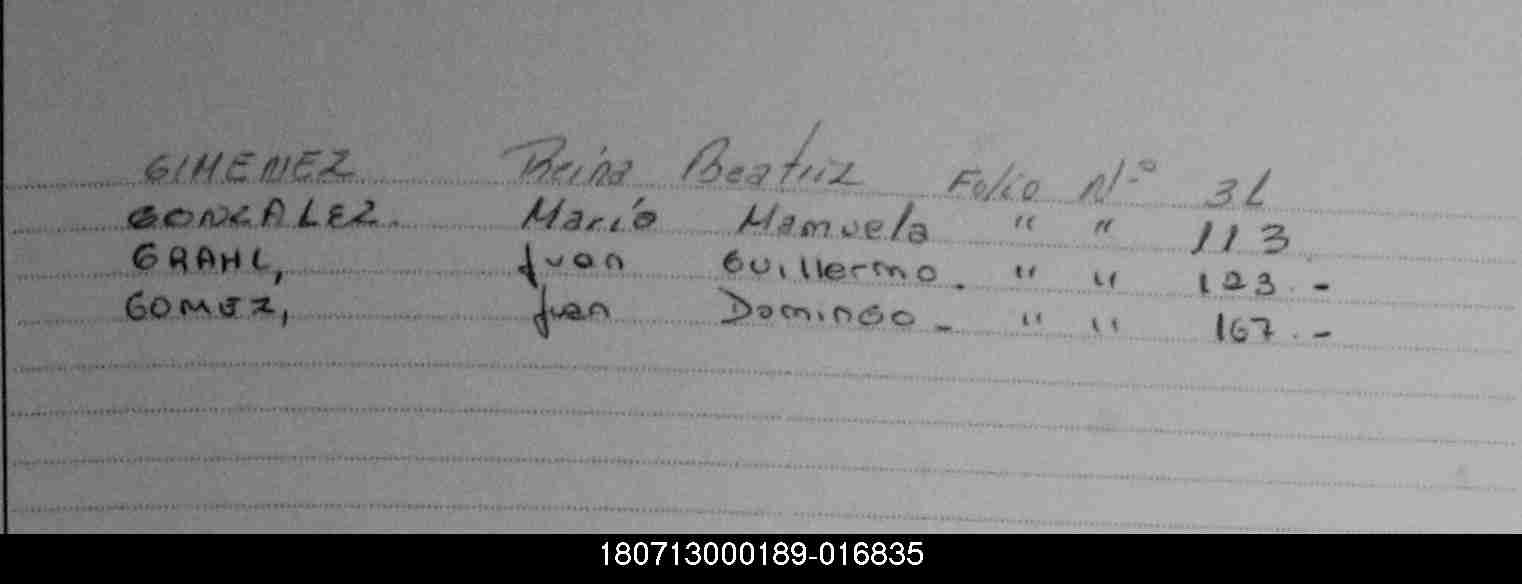 GIMENEZ Reina Beatriz Folio Nº 31
GONZALEZ. Marío Manuela " " 113
GRAHL, Juan Guillermo. " " 123.-
GOMEZ, Juan Domingo - " " 167.-
180713000189-016835